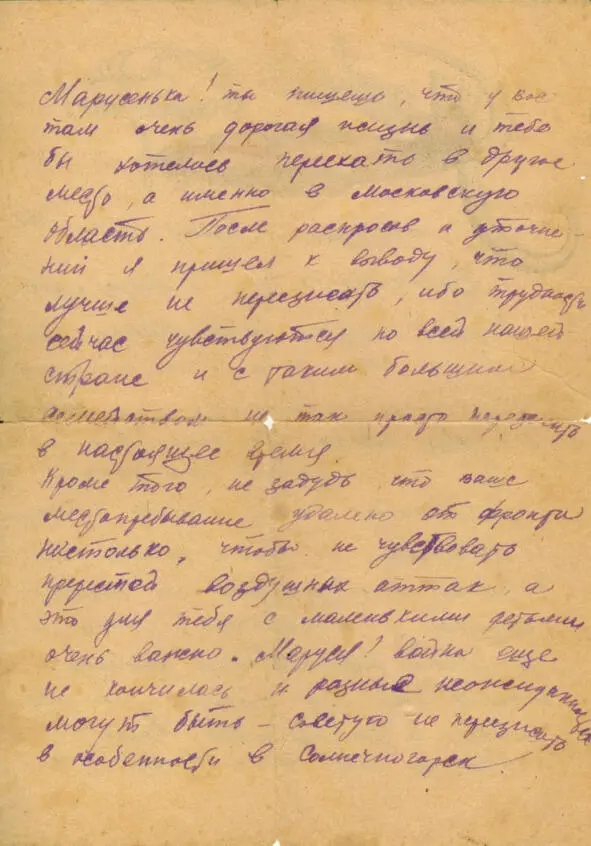 Марусенька! ты пишешь, что у вас
там очень дорогая жизнь и тебе
бы хотелось переехать в другое
место, а именно в Московскую
область. После распросов и уточне-
ний я пришел к выводу, что
лучше не переезжать, ибо трудности
сейчас чувствуются по всей нашей
стране и с таким большим
семейством не так просто переехать
в настоящее время.
Кроме того, не забудь что ваше
местопребывание удалено от фронта
настолько, чтобы не чувствовать
прелестей воздушных аттак, а
это для тебя с маленькими детьми
очень важно. Маруся! война еще
не кончилась и разные неожиданности
могут быть – советую не переезжать
в особенности в Солнечногорск